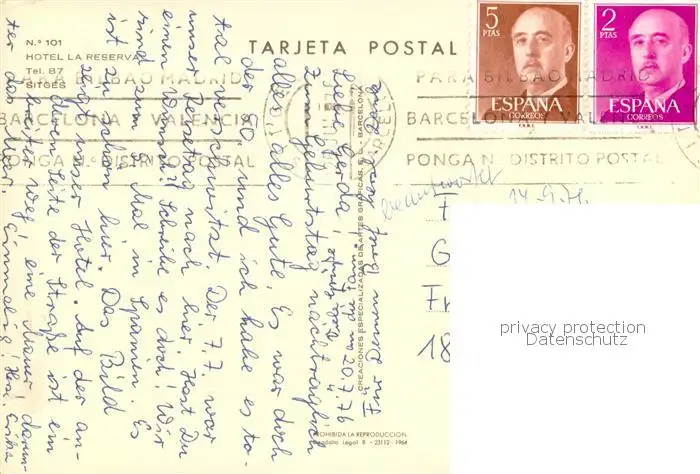 N.º 101
HOTEL LA RESERVA
Tel. 87
SITGES
TARJETA POSTAL
5
PTAS
ESPAÑA
CORREOS
2
PTAS
ESPAÑA
CORREOS
PARA BILBAO MADRID
BARCELONA Y VALENCIA
PONGA N.º DISTRITO POSTAL
PARA BILBAO MADRID
BARCELONA Y VALENCIA
PONGA N.º DISTRITO POSTAL
beantwortet
14.9.76.
F
G
Fr
18
privacy protection
Datenschutz
20.7.76
Liebe Gerda!
Zum Geburtstag nachträglich
alles, alles Gute. Es war doch
der 50. und ich habe es to-
tal verschwitzt. Der 7.7. war
unser Reisetag nach hier. Hast Du
einen Wunsch? Schreibe es doch! Wir
sind zum 8. Mal in Spanien. Es
ist zu schön hier. Das Bild
zeigt unser Hotel. Auf der an-
deren Seite der Straße ist ein
breiter Weg, eine Mauer darun-
ter das Meer. Einmalig!
Für Deinen Brief
CREACIONES ESPECIALIZADAS DE ARTES GRAFICAS, S. L. BARCELONA
PROHIBIDA LA REPRODUCCION
Depósito Legal B - 23112 - 1964